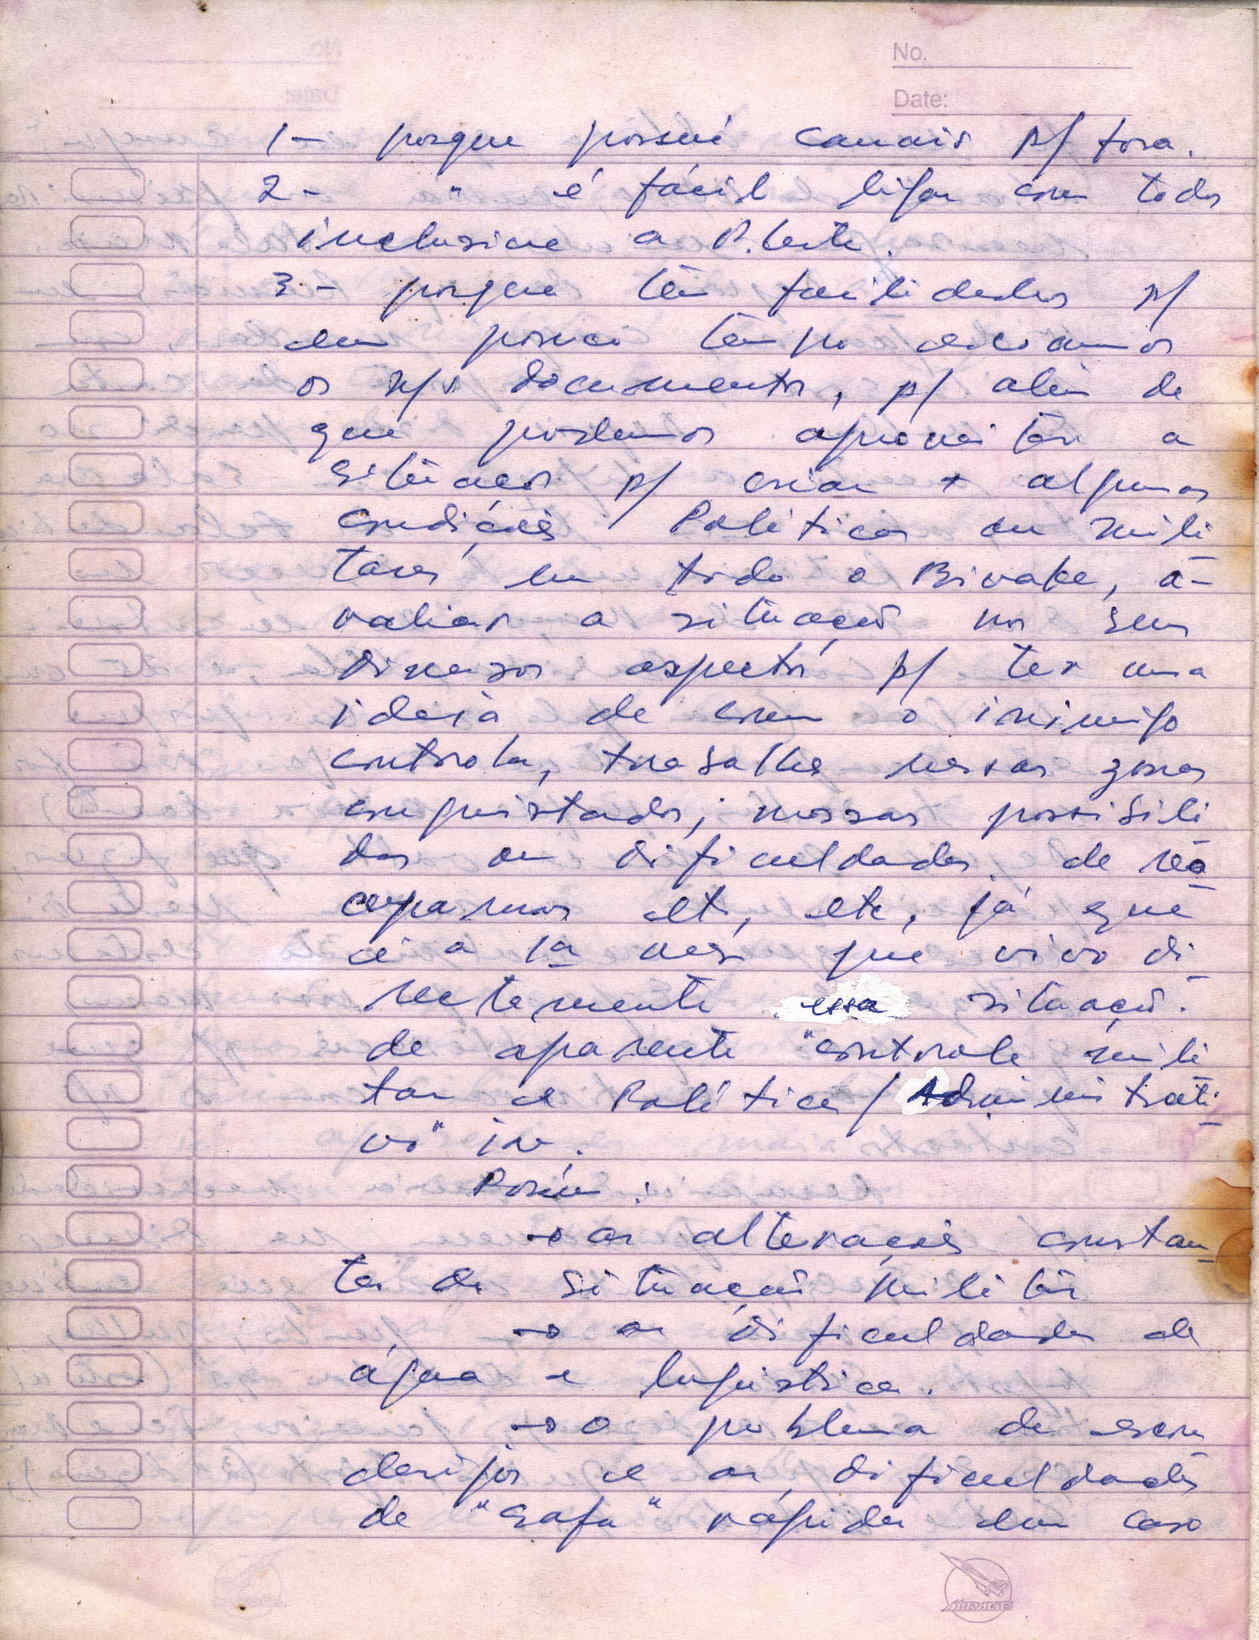 No.
Date:
1- porque possui canais p/ fora.
2- " é fácil ligar com todos
inclusive a P. Leste.
3- porque têm facilidades p/
em pouco tempo
os n/s documentos, p/ além de
que podemos aproveitar a
situação p/ criar + algumas
condições Políticas ou mili
tares em todo o Bivake, a-
valiar a situação nos seus
diversos aspectos p/ ter uma
ideia de como o inimigo
controla, trabalha nessas zonas
conquistadas; nossas possibili
das ou dificuldades de reo
cuparmos etc, etc, já que
é a 1a vez que vivo di
rectamente essa situação.
de aparente "controle mili
tar e Político/Administrati
vo" in.
Porém:
→ as alterações constan
tes da situação militar
→ as dificuldades de
água e logística.
→ o problema de escon
derijos e as dificuldades
de "Safa" rápida em caso